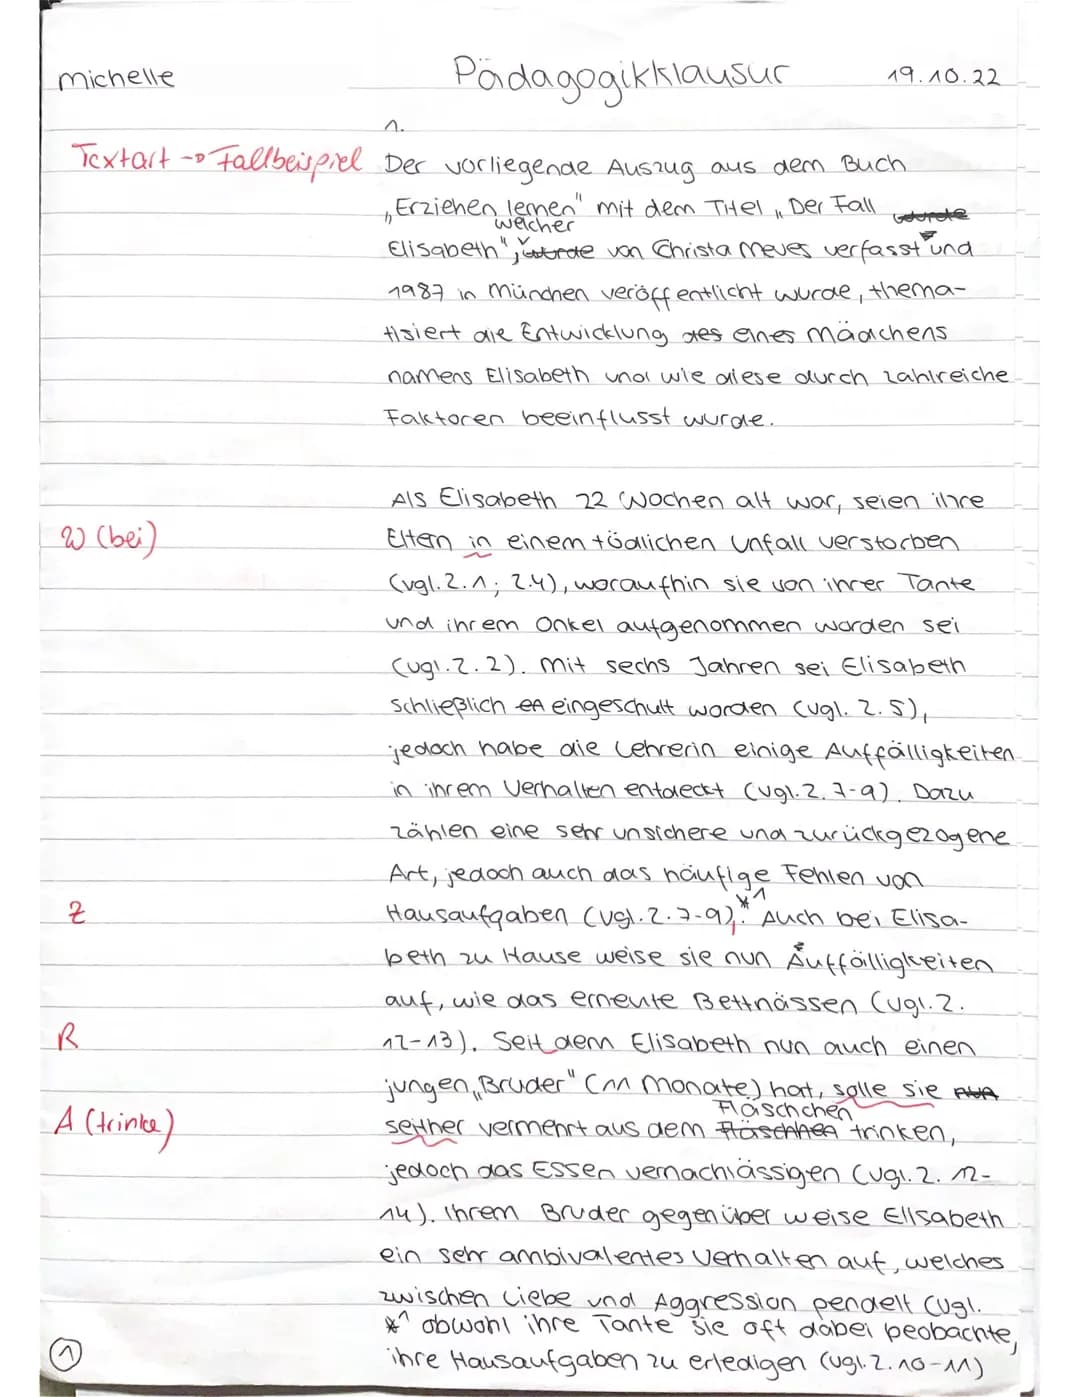 Michelle
Pädagogikklausur
19.10.22
1.
Textart -> Fallbeispiel
Der vorliegende Auszug aus dem Buch
„Erziehen lernen" mit dem Titel „Der Fall wurde
welcher
Elisabeth", wurde von Christa Meves verfasst und
1987 in München veröffentlicht wurde, thema-
tisiert die Entwicklung des eines Mädchens
namens Elisabeth und wie diese durch zahlreiche
Faktoren beeinflusst wurde.
Als Elisabeth 22 Wochen alt war, seien ihre
W (bei)
Eltern in einem tödlichen Unfall verstorben
(vgl. Z. 1; Z.4), woraufhin sie von ihrer Tante
und ihrem Onkel aufgenommen worden sei
(vgl. Z. 2). Mit sechs Jahren sei Elisabeth
schließlich eA eingeschult worden (vgl. Z. 5),
jedoch habe die Lehrerin einige Auffälligkeiten
in ihrem Verhalten entdeckt (vgl. Z. 7-9). Dazu
zählen eine sehr unsichere und zurückgezogene
Art, jedoch auch das häufige Fehlen von
Z
Hausaufgaben (vgl. Z. 7-9),*1. Auch bei Elisa-
beth zu Hause weise sie nun Auffälligkeiten
auf, wie das erneute Bettnässen (vgl. Z.
R
12-13). Seit dem Elisabeth nun auch einen
jungen „Bruder" (11 Monate) hat, solle sie nun
A (trinke)
Fläschchen
seither vermehrt aus dem Fläschhen trinken,
jedoch das Essen vernachlässigen (vgl. Z. 12-
14). Ihrem Bruder gegenüber weise Elisabeth
ein sehr ambivalentes Verhalten auf, welches
zwischen Liebe und Aggression pendelt (vgl.
*1 obwohl ihre Tante sie oft dabei beobachte,
ihre Hausaufgaben zu erledigen (vgl. Z. 10-11)
1